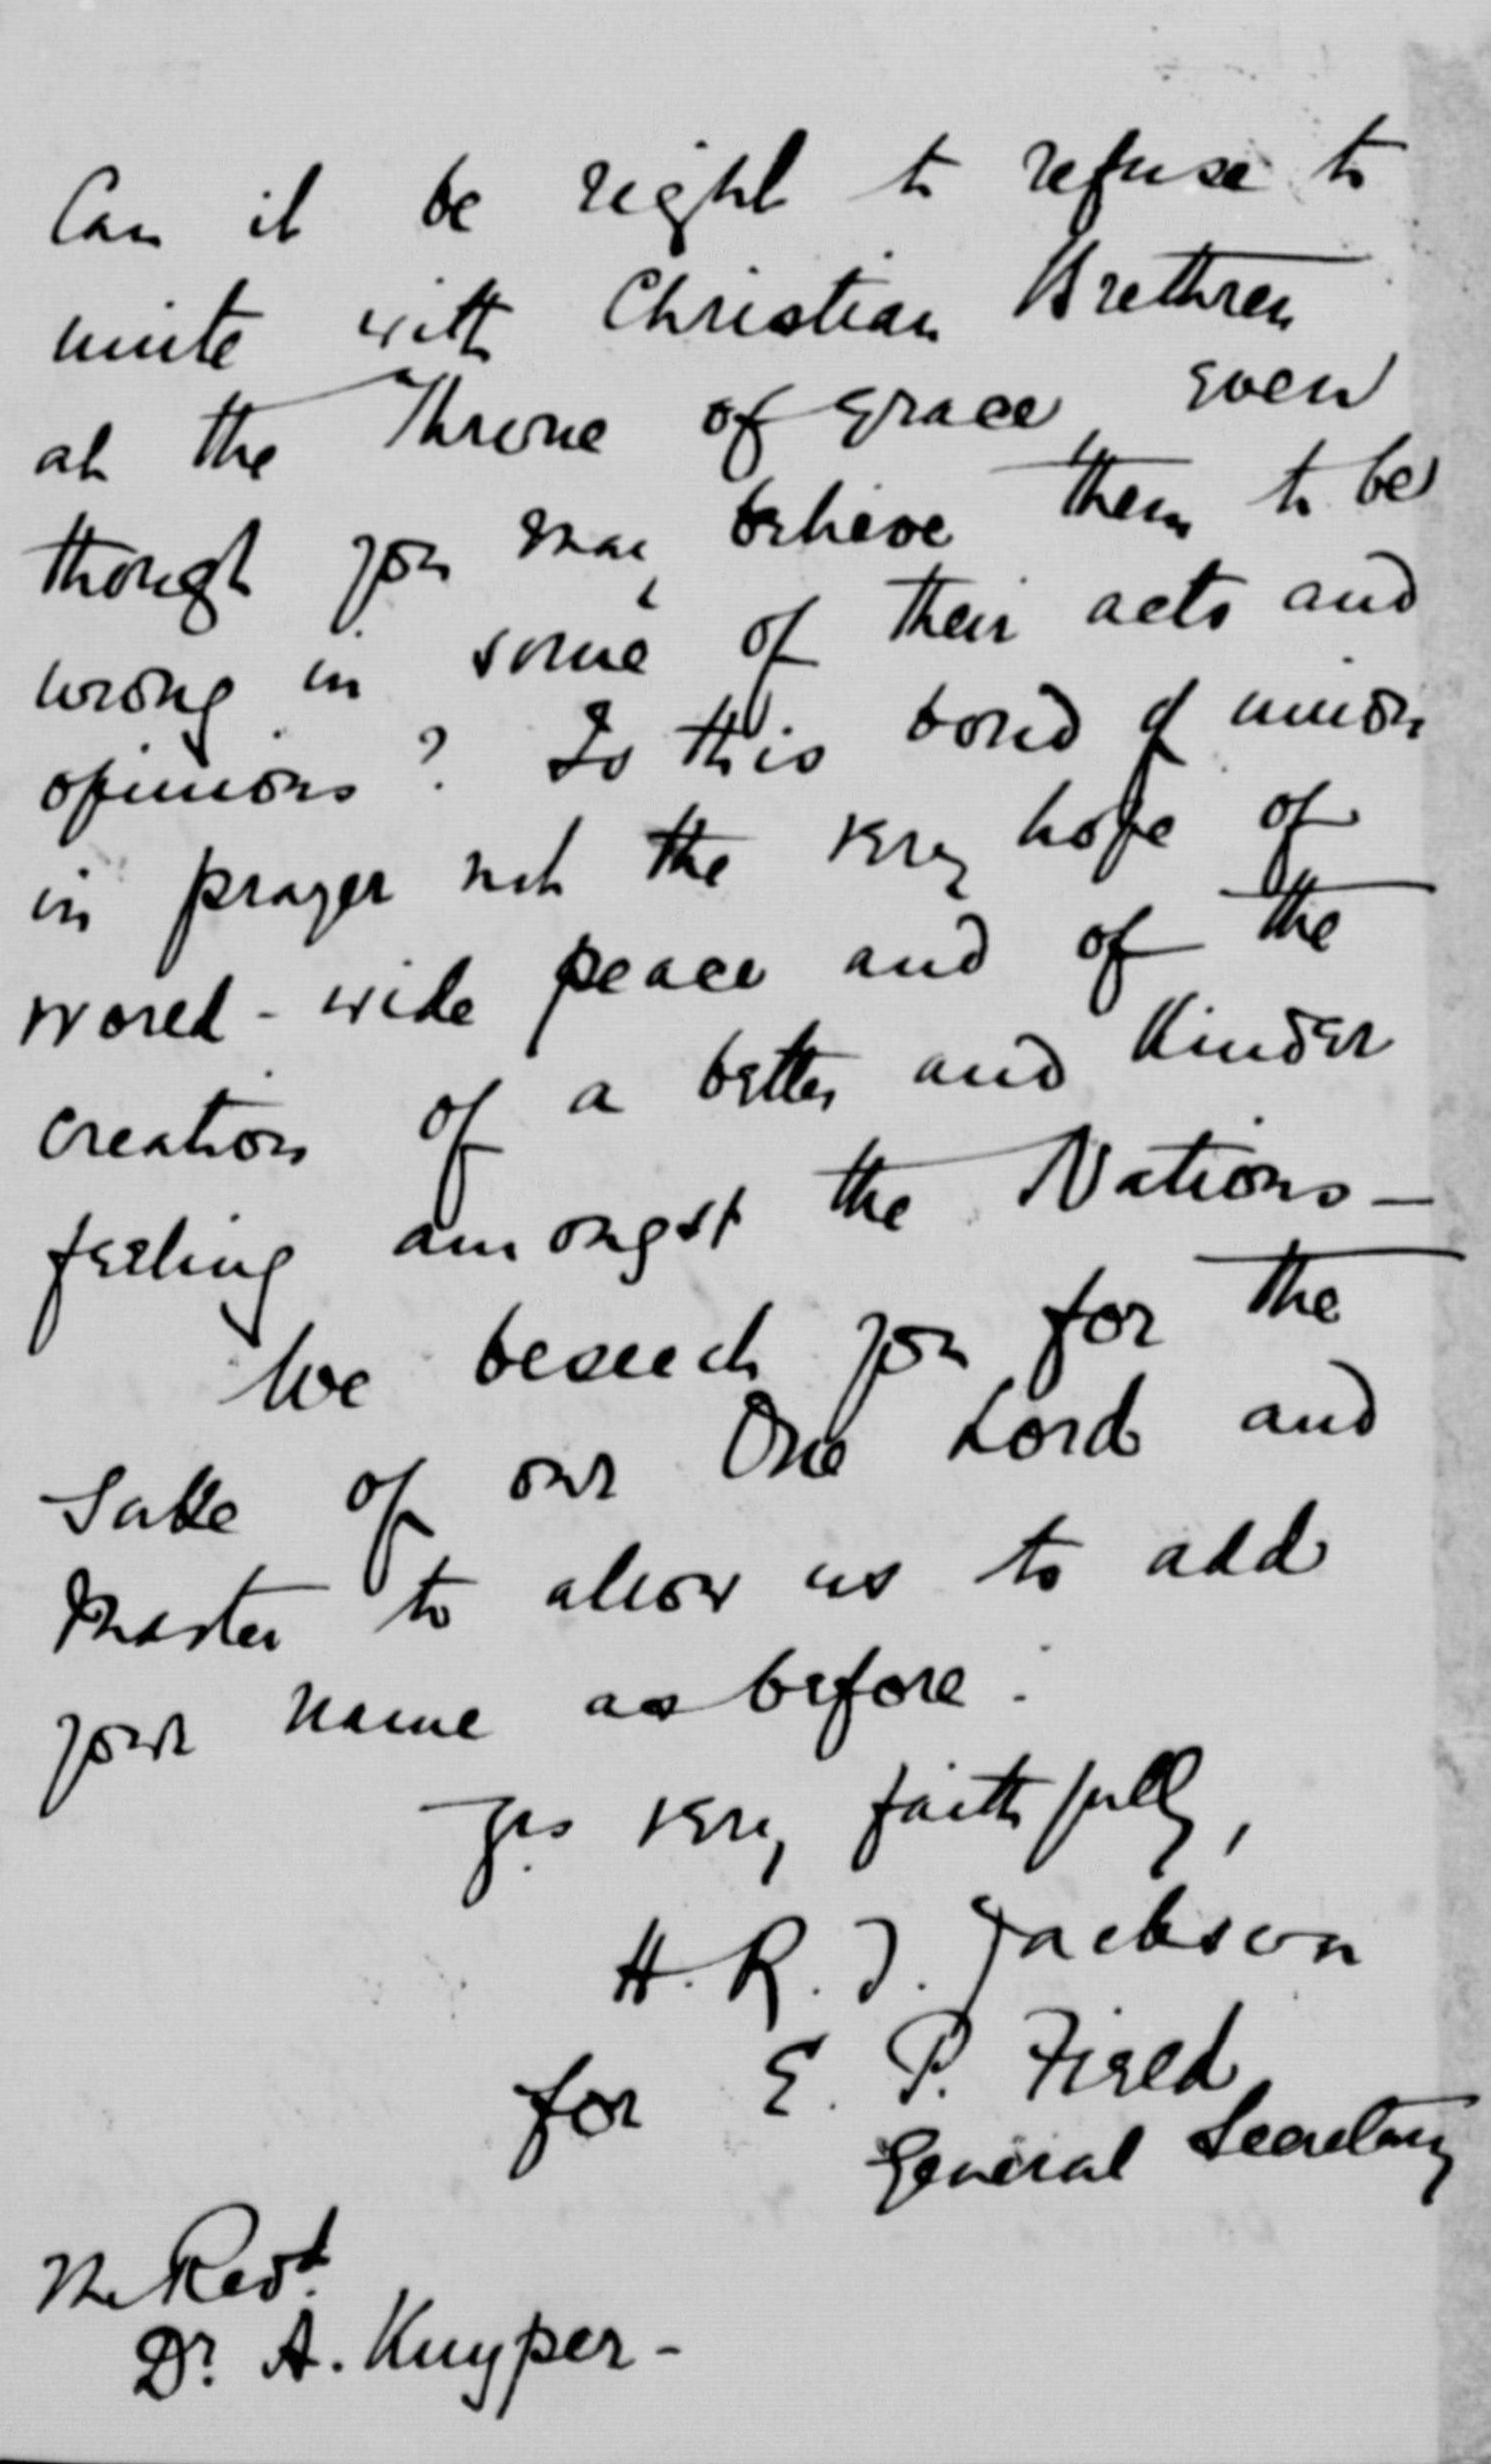 Can it be right to refuse to
unite with Christian Brethren
at the Throne of Grace even
though you may believe them to be
wrong in some of their acts and
opinions? Is this bond of union
in prayer not the very hope of
world-wide peace and of the
creation of a better and kinder
feeling amongst the Nations —
We beseech you for the
Sake of our One Lord and
Master to allow us to add
your name as before.
Yrs very faithfully,
H. R. J. Jackson
for E. P. Field
General Secretary
The Revd.
Dr. A. Kuyper -